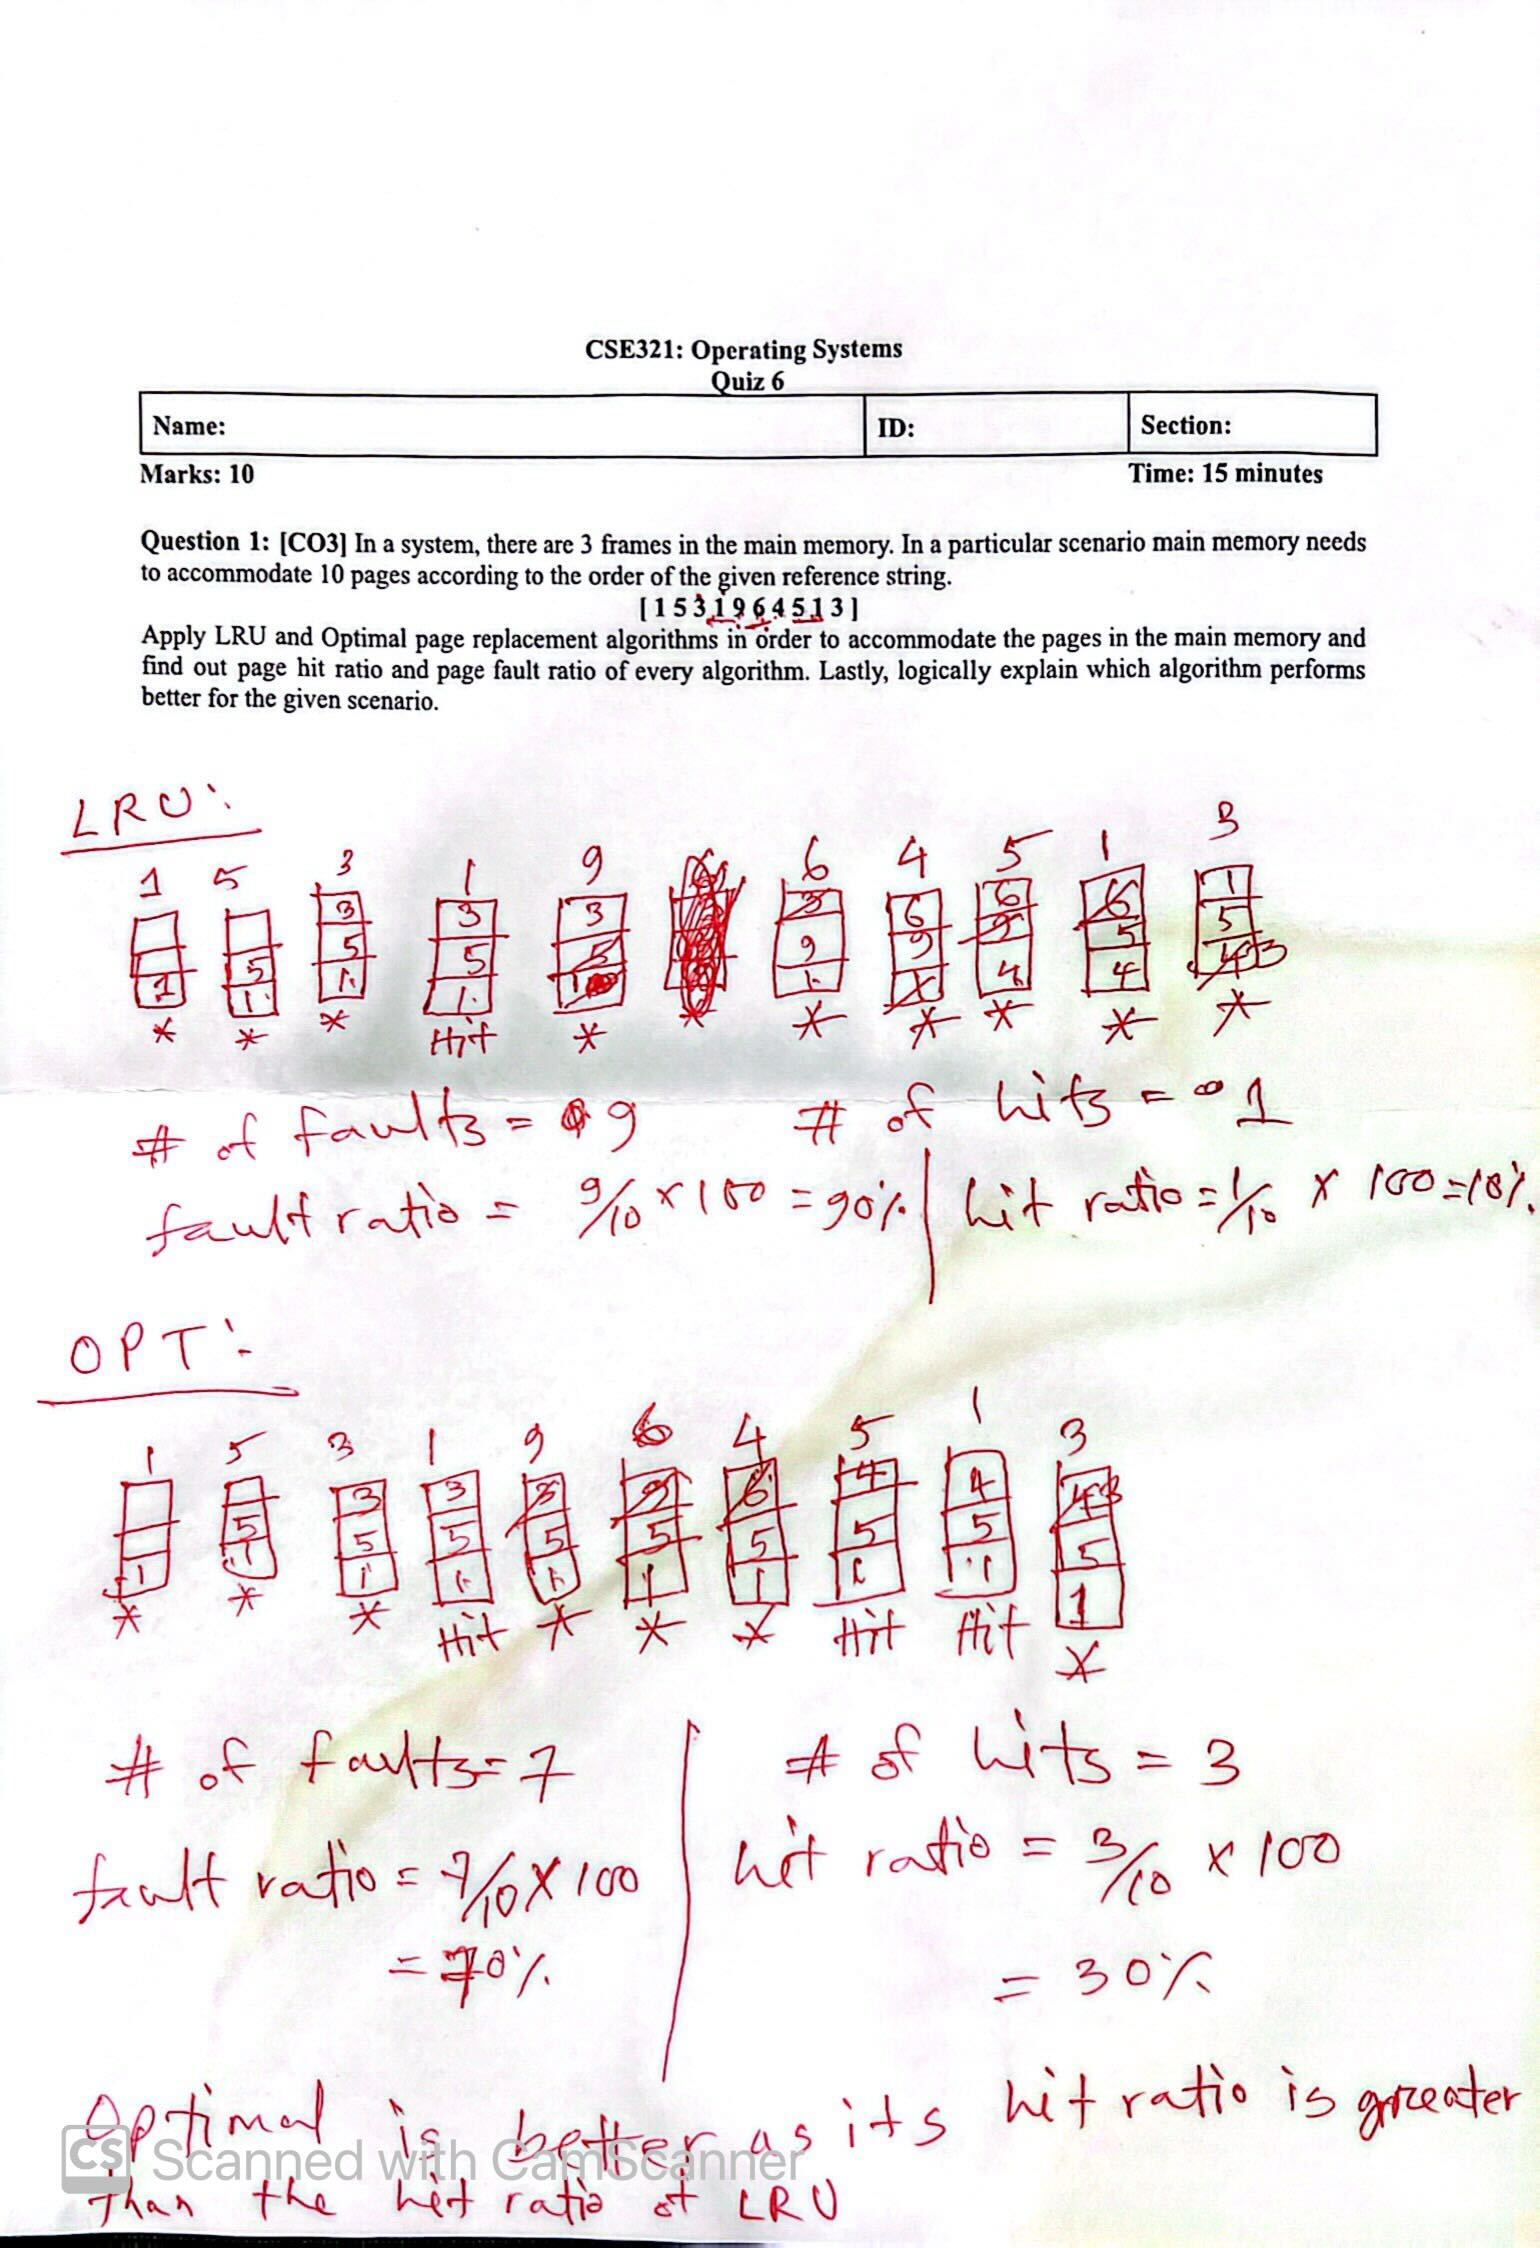 CSE321: Operating Systems
Quiz 6
Name: ID: Section:
Marks: 10 Time: 15 minutes
Question 1: [CO3] In a system, there are 3 frames in the main memory. In a particular scenario main memory needs
to accommodate 10 pages according to the order of the given reference string.
[ 1 5 3 1 9 6 4 5 1 3 ]
Apply LRU and Optimal page replacement algorithms in order to accommodate the pages in the main memory and
find out page hit ratio and page fault ratio of every algorithm. Lastly, logically explain which algorithm performs
better for the given scenario.
LRU:
1 5 3 1 9 6 4 5 1 3
3 3 3 3 6 6 6 1
5 5 5 5 9 9 9 5 5
1 1 1 1 1 1 1 4 4 4 3
* * * Hit * * * * * * *
# of faults = 9 # of hits = 1
fault ratio = 9/10 x 100 = 90% hit ratio = 1/10 x 100 = 10%
OPT:
1 5 3 1 9 6 4 5 1 3
3 3 3 9 6 4 4 4 3
5 5 5 5 5 5 5 5 5
1 1 1 1 1 1 1 1 1 1
* * * Hit * * * Hit Hit *
# of faults = 7 # of hits = 3
fault ratio = 7/10 x 100 hit ratio = 3/10 x 100
= 70% = 30%
Optimal is better as its hit ratio is greater
than the hit ratio of LRU
CS Scanned with CamScanner